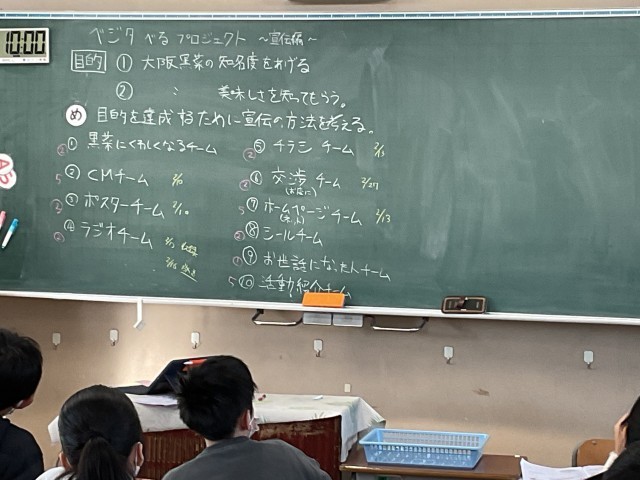 10:00
ベジタべるプロジェクト ～宣伝編～
目的 ① 大阪黒菜の知名度をあげる
② 〃 美味しさを知ってもらう。
め 目的を達成するために宣伝の方法を考える。
① 黒菜にくわしくなるチーム
5 ② CMチーム 2/10
③ ポスターチーム 2/10
④ ラジオチーム
⑤ チラシチーム 2/13
⑥ 交渉チーム 2/27
5 ⑦ ホームページチーム 2/13
⑧ シールチーム
⑨ お世話になった人チーム
5 ⑩ 活動紹介チーム